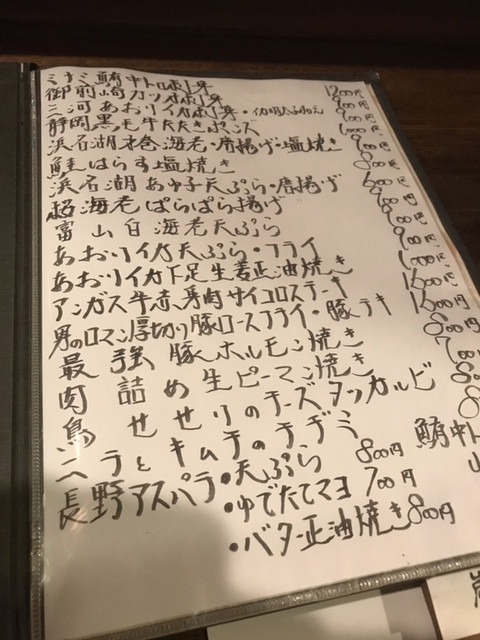 ミナミ鮪中トロ刺身 1200円
御前崎カツオ刺身 900円
三河あおりイカ刺身・イカ明太ふねん 900円
静岡黒毛牛たたきポン酢 1000円
浜名湖本巻海老・唐揚げ・塩焼き 900円
鮭はらす塩焼き 800円
浜名湖あゆ子天ぷら・唐揚げ
超海老ぱらぱら揚げ
富山白海老天ぷら
あおりイカ天ぷら・フライ
あおりイカ下足生姜正油焼き 1000円
アンガス牛赤身肉サイコロステーキ 1600円
男のロマン厚切り豚ロースフライ・豚テキ 1600円
最強豚ホルモン焼き 800円
肉詰め生ピーマン焼き 700円
鳥せせりのチーズタッカルビ
ニラとキムチのチヂミ
長野アスパラ・天ぷら 800円
・ゆでたてマヨ 700円
・バター正油焼き 800円
鮪中ト